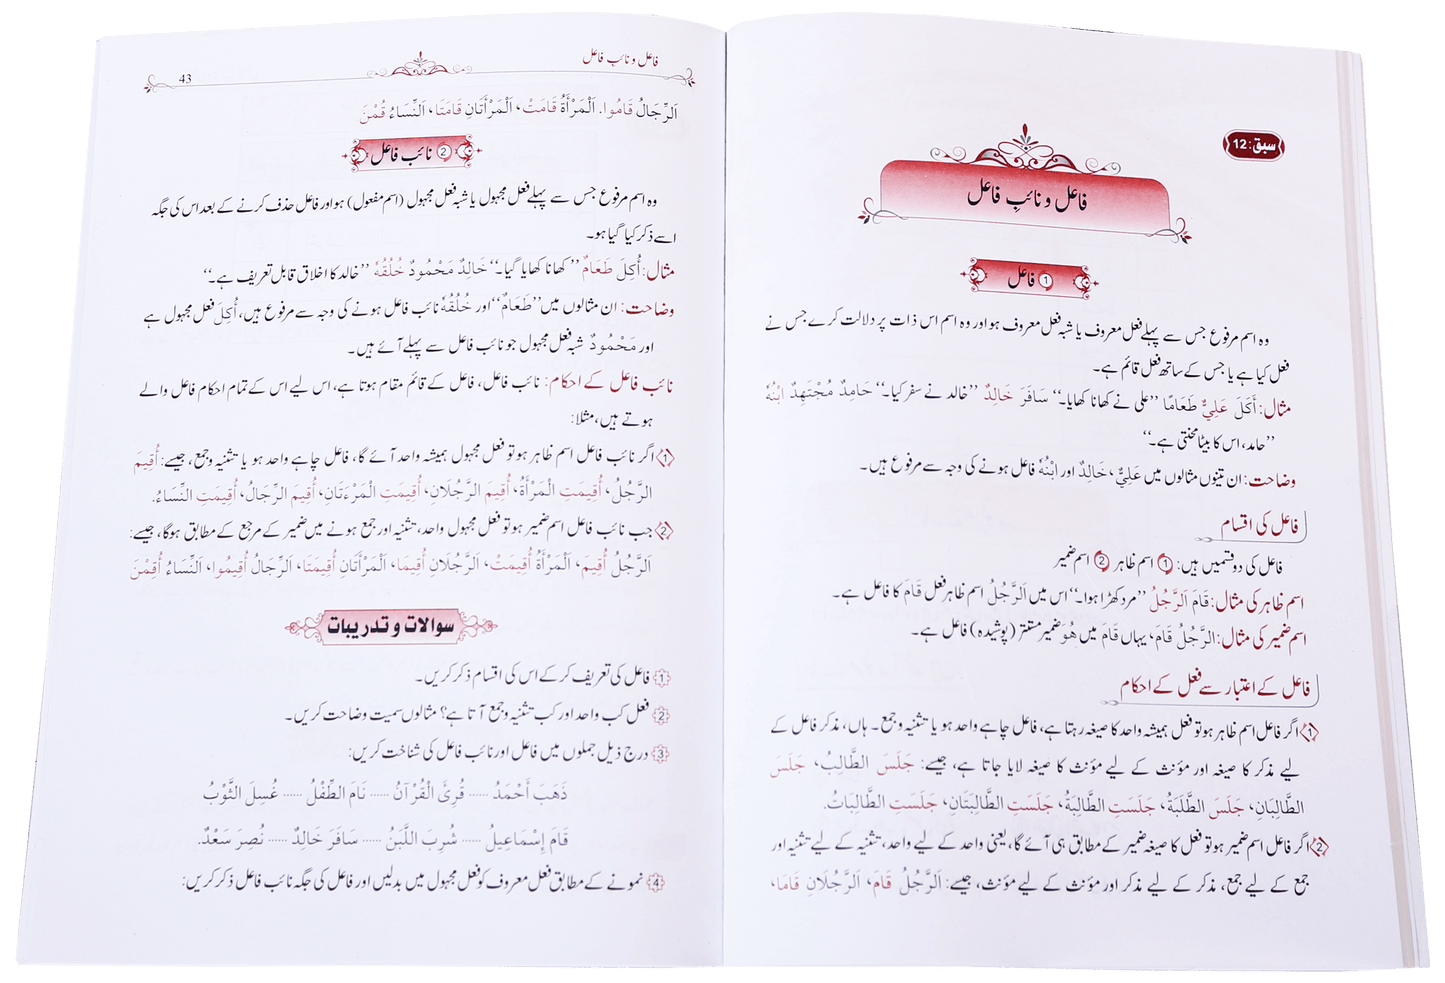 سبق: 12
فاعل و نائبِ فاعل
1 فاعل
وہ اسم مرفوع جس سے پہلے فعل معروف یا شبہ فعل معروف ہو اور وہ اسم اس ذات پر دلالت کرے جس نے
فعل کیا ہے یا جس کے ساتھ فعل قائم ہے۔
مثال: أَكَلَ عَلِيٌّ طَعَامًا ’’علی نے کھانا کھایا۔‘‘ سَافَرَ خَالِدٌ ’’خالد نے سفر کیا۔‘‘ حَامِدٌ مُجْتَهِدٌ ابْنُهٗ
’’حامد، اس کا بیٹا محنتی ہے۔‘‘
وضاحت: ان تینوں مثالوں میں عَلِيٌّ، خَالِدٌ اور ابْنُهٗ فاعل ہونے کی وجہ سے مرفوع ہیں۔
فاعل کی اقسام
فاعل کی دو قسمیں ہیں: 1 اسم ظاہر 2 اسم ضمیر
اسم ظاہر کی مثال: قَامَ اَلرَّجُلُ ’’مرد کھڑا ہوا۔‘‘ اس میں اَلرَّجُلُ اسم ظاہر فعل قَامَ کا فاعل ہے۔
اسم ضمیر کی مثال: الرَّجُلُ قَامَ، یہاں قَامَ میں هُوَ ضمیر مستتر (پوشیدہ) فاعل ہے۔
فاعل کے اعتبار سے فعل کے احکام
1 اگر فاعل اسم ظاہر ہو تو فعل ہمیشہ واحد کا صیغہ رہتا ہے، فاعل چاہے واحد ہو یا تثنیہ و جمع۔ ہاں، مذکر فاعل کے
لیے مذکر کا صیغہ اور مؤنث کے لیے مؤنث کا صیغہ لایا جاتا ہے، جیسے: جَلَسَ الطَّالِبُ، جَلَسَ
الطَّالِبَانِ، جَلَسَ الطَّلَبَةُ، جَلَسَتِ الطَّالِبَةُ، جَلَسَتِ الطَّالِبَتَانِ، جَلَسَتِ الطَّالِبَاتُ.
2 اگر فاعل اسم ضمیر ہو تو فعل کا صیغہ ضمیر کے مطابق ہی آئے گا، یعنی واحد کے لیے واحد، تثنیہ کے لیے تثنیہ اور
جمع کے لیے جمع، مذکر کے لیے مذکر اور مؤنث کے لیے مؤنث، جیسے: اَلرَّجُلُ قَامَ، اَلرَّجُلَانِ قَامَا،
فاعل و نائب فاعل
43
اَلرِّجَالُ قَامُوا. اَلْمَرْأَةُ قَامَتْ، اَلْمَرْأَتَانِ قَامَتَا، اَلنِّسَاءُ قُمْنَ
2 نائب فاعل
وہ اسم مرفوع جس سے پہلے فعل مجہول یا شبہ فعل مجہول (اسم مفعول) ہو اور فاعل حذف کرنے کے بعد اس کی جگہ
اسے ذکر کیا گیا ہو۔
مثال: أُكِلَ طَعَامٌ ’’کھانا کھایا گیا۔‘‘ خَالِدٌ مَحْمُودٌ خُلُقُهٗ ’’خالد کا اخلاق قابل تعریف ہے۔‘‘
وضاحت: ان مثالوں میں ’’طَعَامٌ‘‘ اور خُلُقُهٗ نائب فاعل ہونے کی وجہ سے مرفوع ہیں، أُكِلَ فعل مجہول ہے
اور مَحْمُودٌ شبہ فعل مجہول جو نائب فاعل سے پہلے آئے ہیں۔
نائب فاعل کے احکام: نائب فاعل، فاعل کے قائم مقام ہوتا ہے، اس لیے اس کے تمام احکام فاعل والے
ہوتے ہیں، مثلا:
1 اگر نائب فاعل اسم ظاہر ہو تو فعل مجہول ہمیشہ واحد آئے گا، فاعل چاہے واحد ہو یا تثنیہ و جمع، جیسے: أُقِيمَ
الرَّجُلُ، أُقِيمَتِ الْمَرْأَةُ، أُقِيمَ الرَّجُلَانِ، أُقِيمَتِ الْمَرْءَتَانِ، أُقِيمَ الرِّجَالُ، أُقِيمَتِ النِّسَاءُ.
2 جب نائب فاعل اسم ضمیر ہو تو فعل مجہول واحد، تثنیہ اور جمع ہونے میں ضمیر کے مرجع کے مطابق ہوگا، جیسے:
اَلرَّجُلُ أُقِيمَ، اَلْمَرْأَةُ أُقِيمَتْ، اَلرَّجُلَانِ أُقِيمَا، اَلْمَرْأَتَانِ أُقِيمَتَا، اَلرِّجَالُ أُقِيمُوا، اَلنِّسَاءُ أُقِمْنَ
سوالات و تدریبات
1 فاعل کی تعریف کر کے اس کی اقسام ذکر کریں۔
2 فعل کب واحد اور کب تثنیہ و جمع آتا ہے؟ مثالوں سمیت وضاحت کریں۔
3 درج ذیل جملوں میں فاعل اور نائب فاعل کی شناخت کریں:
ذَهَبَ أَحْمَدُ ...... قُرِئَ الْقُرْآنُ ...... نَامَ الطِّفْلُ ...... غُسِلَ الثَّوْبُ
قَامَ إِسْمَاعِيلُ ...... شُرِبَ اللَّبَنُ ...... سَافَرَ خَالِدٌ ...... نُصِرَ سَعْدٌ.
4 نمونے کے مطابق فعل معروف کو فعل مجہول میں بدلیں اور فاعل کی جگہ نائب فاعل ذکر کریں: